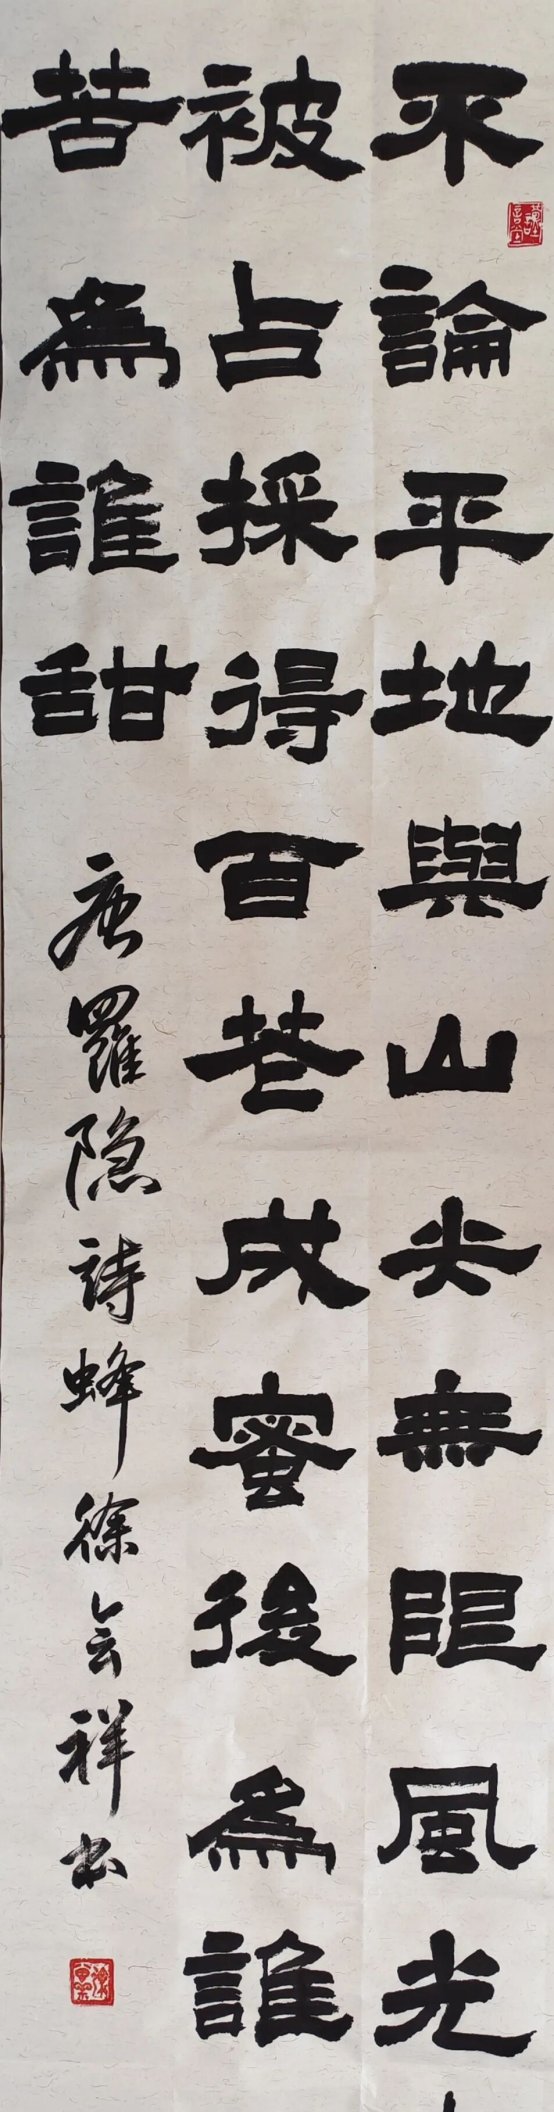 不論平地與山尖無限風光
被占採得百花成蜜後為誰
苦為誰甜
唐羅隐詩蜂徐会祥书